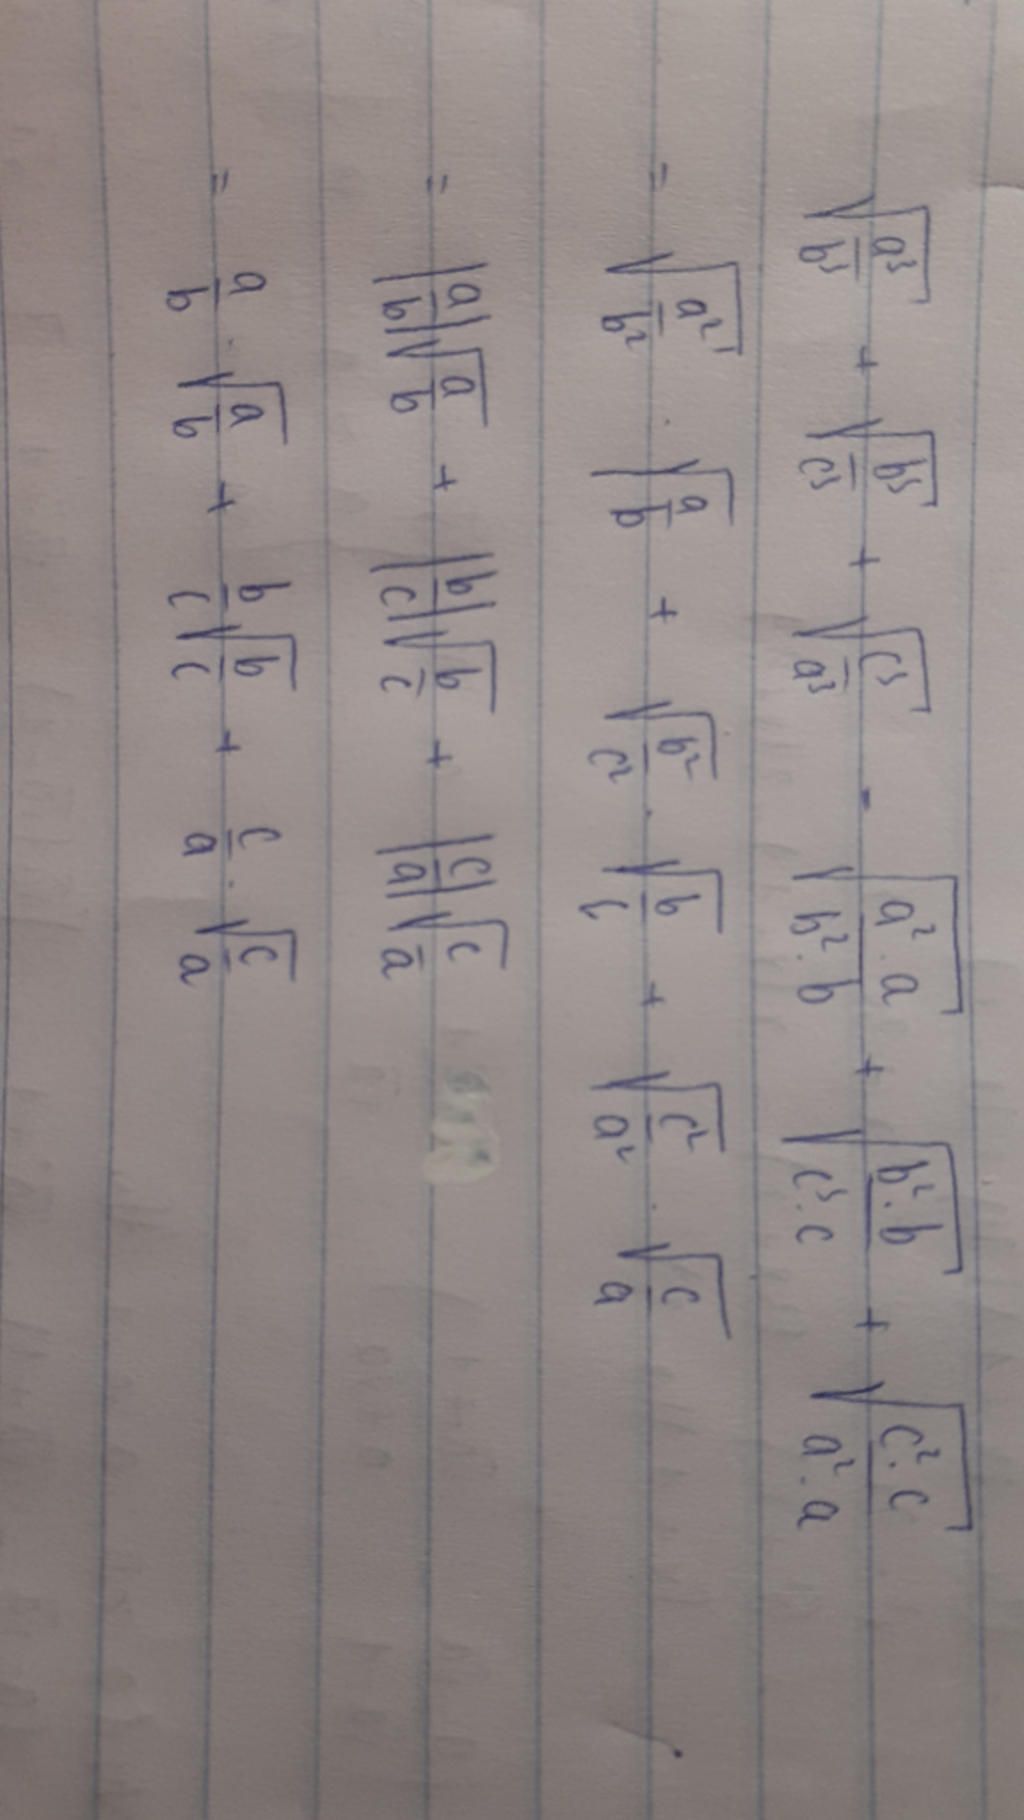 √(a³/b³) + √(b³/c³) + √(c³/a³) = √(a².a/b².b) + √(b².b/c³.c) + √(c².c/a².a)
= √(a²/b²) . √(a/b) + √(b²/c²) . √(b/c) + √(c²/a²) . √(c/a)
= |a/b| √(a/b) + |b/c| √(b/c) + |c/a| √(c/a)
= a/b . √(a/b) + b/c √(b/c) + c/a . √(c/a)